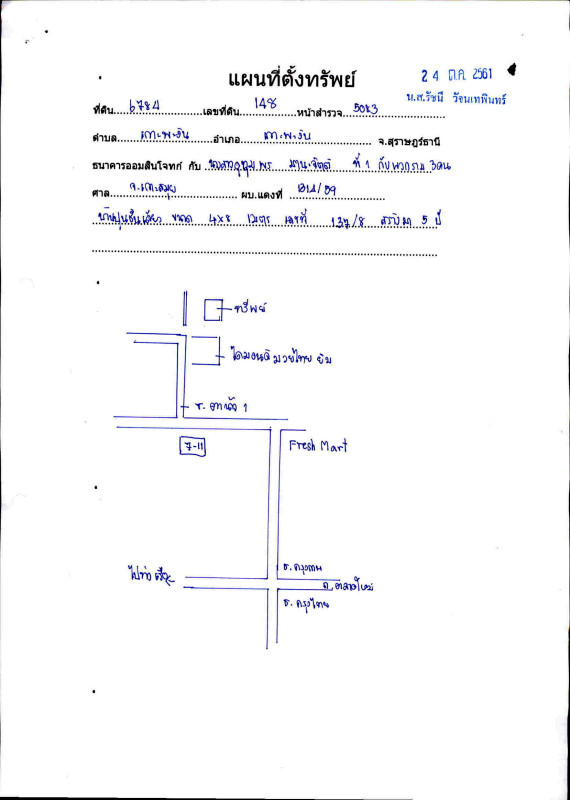 24 ต.ค. 2561
แผนที่ตั้งทรัพย์
น.ส.รัชนี วัจนเทพินทร์
ที่ดิน 6784 เลขที่ดิน 148 หน้าสำรวจ
ตำบล เกาะพะงัน อำเภอ เกาะพะงัน จ.สุราษฎร์ธานี
ธนาคารออมสินโจทก์ กับ ที่ 1 กับพวกรวม 3คน
ศาล จ.เกาะสมุย ผบ.แดงที่ 814/59
บ้านปูนชั้นเดียว ขนาด 4x8 เมตร เลขที่ 137/8 5 ปี
ทรัพย์
ไดมอนด์ มวยไทย ยิม
ซ.
1
7-11
Fresh Mart
ธ.กรุงเทพ
ไปท่าเรือ
ถ.ตลาดใหม่
ธ.กรุงไทย